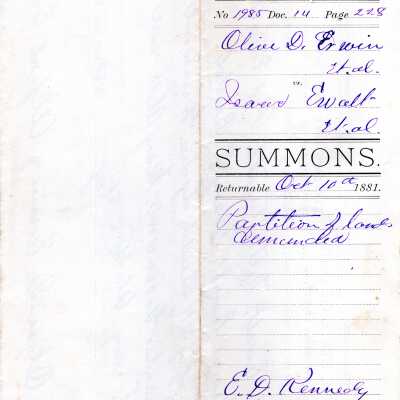 No 1985 Doc. 14 Page 228
Olive D. Erwin
et.al.
vs.
Isaac Ewalt
et.al.
SUMMONS.
Returnable Oct 10th 1881.
Partition of lands
demanded
E. D. Kennedy